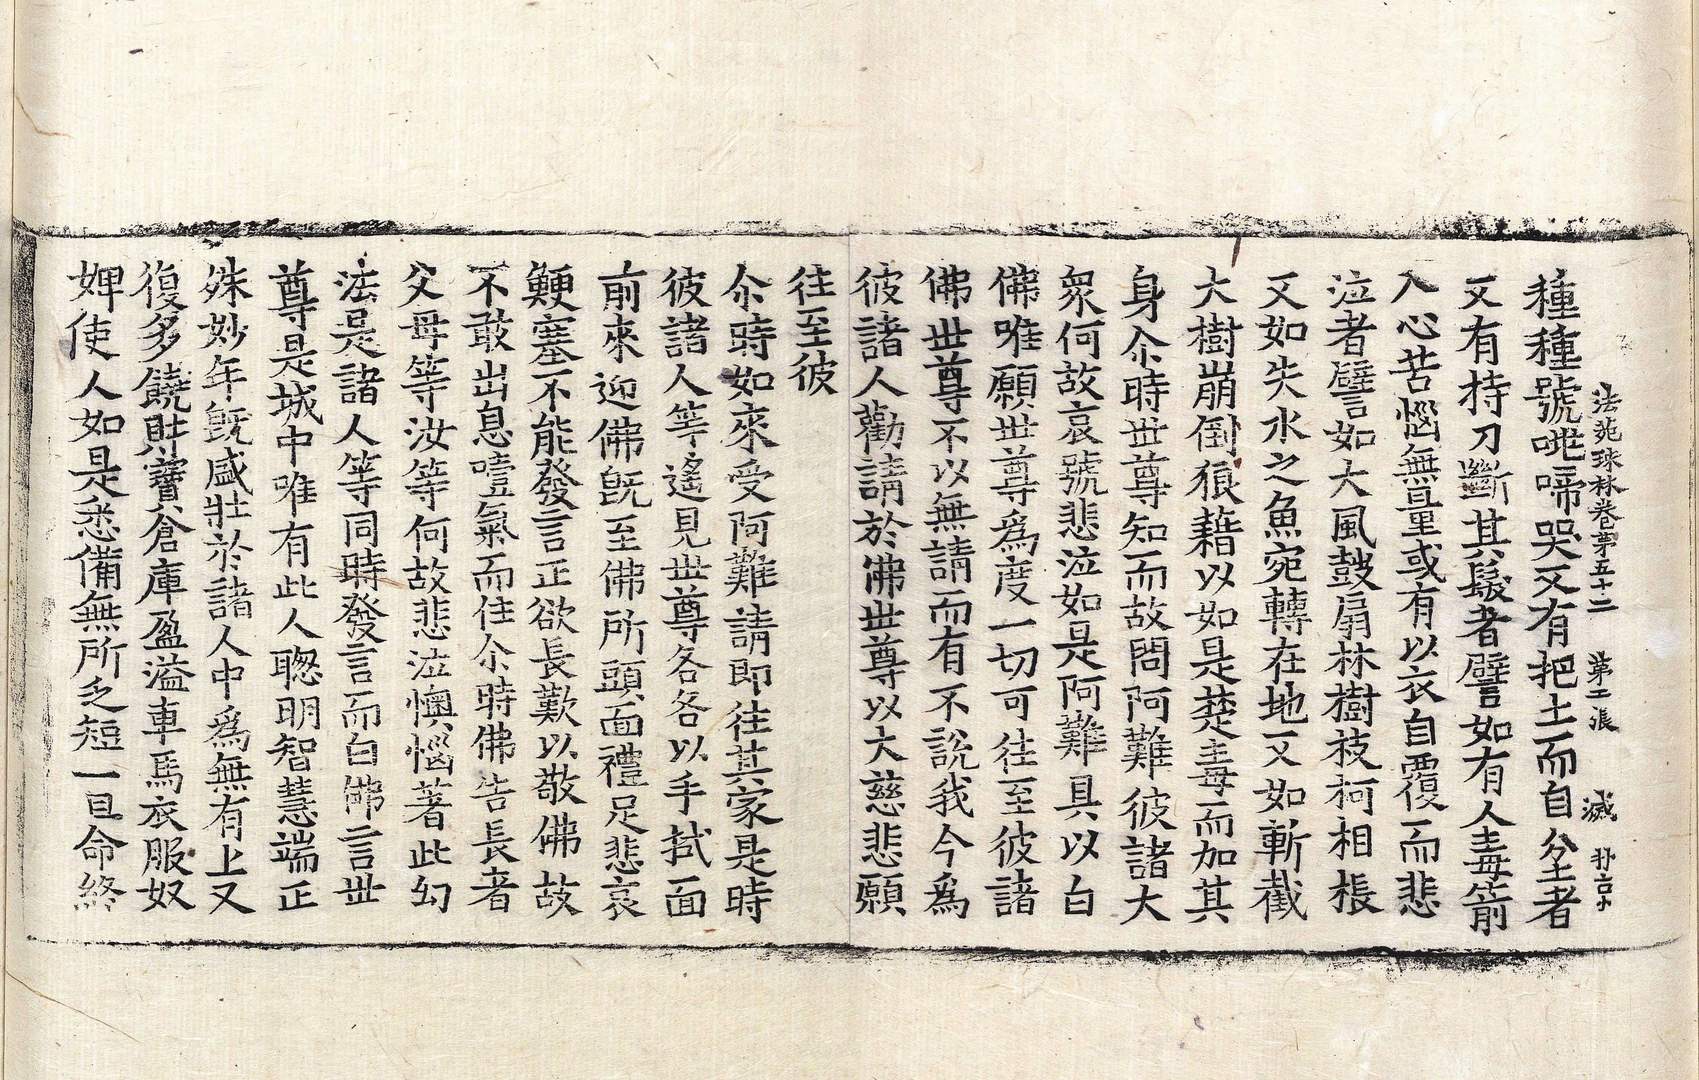 法苑珠林卷第五十二 第二張 滅
種種號咷啼哭又有把土而自坌者
又有持刀斷其髮者譬如有人毒箭
入心苦惱無量或有以衣自覆而悲
泣者譬如大風鼓扇林樹枝柯相棖
又如失水之魚宛轉在地又如斬截
大樹崩倒狼藉以如是楚毒而加其
身尒時世尊知而故問阿難彼諸大
衆何故哀號悲泣如是阿難具以白
佛唯願世尊爲度一切可往至彼諸
佛世尊不以無請而有不說我今爲
彼諸人勸請於佛世尊以大慈悲願
往至彼
尒時如來受阿難請即往其家是時
彼諸人等遙見世尊各各以手拭面
前來迎佛旣至佛所頭面禮足悲哀
鯁塞不能發言正欲長歎以敬佛故
不敢出息噎氣而住尒時佛告長者
父母等汝等何故悲泣懊惱著此幻
法是諸人等同時發言而白佛言世
尊是城中唯有此人聦明智慧端正
姝妙年旣盛壯於諸人中爲無有上又
復多饒財寶倉庫盈溢車馬衣服奴
婢使人如是悉備無所乏短一旦命終